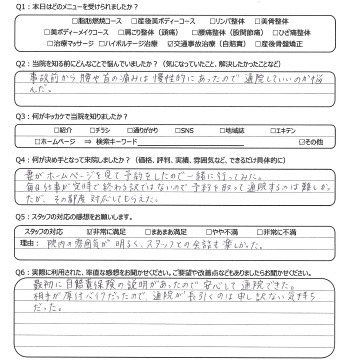 Q1：本日はどのメニューを受けられましたか？
□脂肪燃焼コース □産後美ボディーコース □リンパ整体 □美骨整体
□美ボディーメイクコース □肩こり整体（頭痛） □腰痛整体（股関節痛） □ひざ痛整体
□治療マッサージ □ハイボルテージ治療 ☑交通事故治療（自賠責） □産後骨盤矯正
Q2：当院を知る前にどんなことで悩んでいましたか？（気になっていたこと、解決したかったことなど）
事故前から腰や首の痛みは慢性的にあったので通院していいのか悩
んだ。
Q3：何がキッカケで当院を知りましたか？
□紹介 □チラシ □通りがかり □SNS □地域誌 □エキテン
□ホームページ ⇒ 検索キーワード ☑その他
Q4：何が決め手となって来院しましたか？（価格、評判、実績、雰囲気など、できるだけ具体的に）
妻がホームページを見て予約をしたので一緒に行ってみた。
毎日仕事が定時で終わる訳ではないので予約を取って通院するのは難しかっ
たが、その都度対応してもらえた。
Q5：スタッフの対応の感想をお願いします。
スタッフの対応 ☑非常に満足 □まあまあ満足 □やや不満 □非常に不満
理由： 院内の雰囲気が明るく、スタッフとの会話も楽しかった。
Q6：実際に利用された、率直な感想をお聞かせください。ご要望や改善点などもありましたらお聞かせください。
最初に自賠責保険の説明があったので安心して通院できた。
相手が原付バイクだったので、通院が長引くのは申し訳ない気持ち
だった。